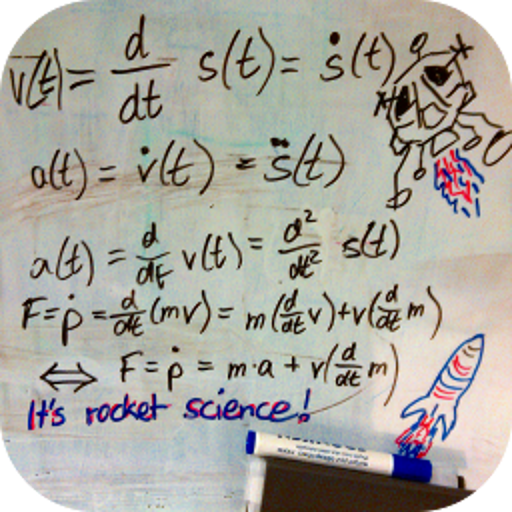 v(t) = d/dt s(t) = ṡ(t)
a(t) = v̇(t) = s̈(t)
a(t) = d/dt v(t) = d²/dt² s(t)
F = ṗ = d/dt (mv) = m(d/dt v) + v(d/dt m)
⟺ F = ṗ = m·a + v(d/dt m)
It's rocket science!